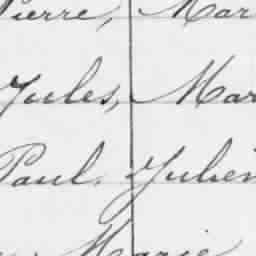 Pierre, Mar
Jules, Mar
Paul, Julien
Marie